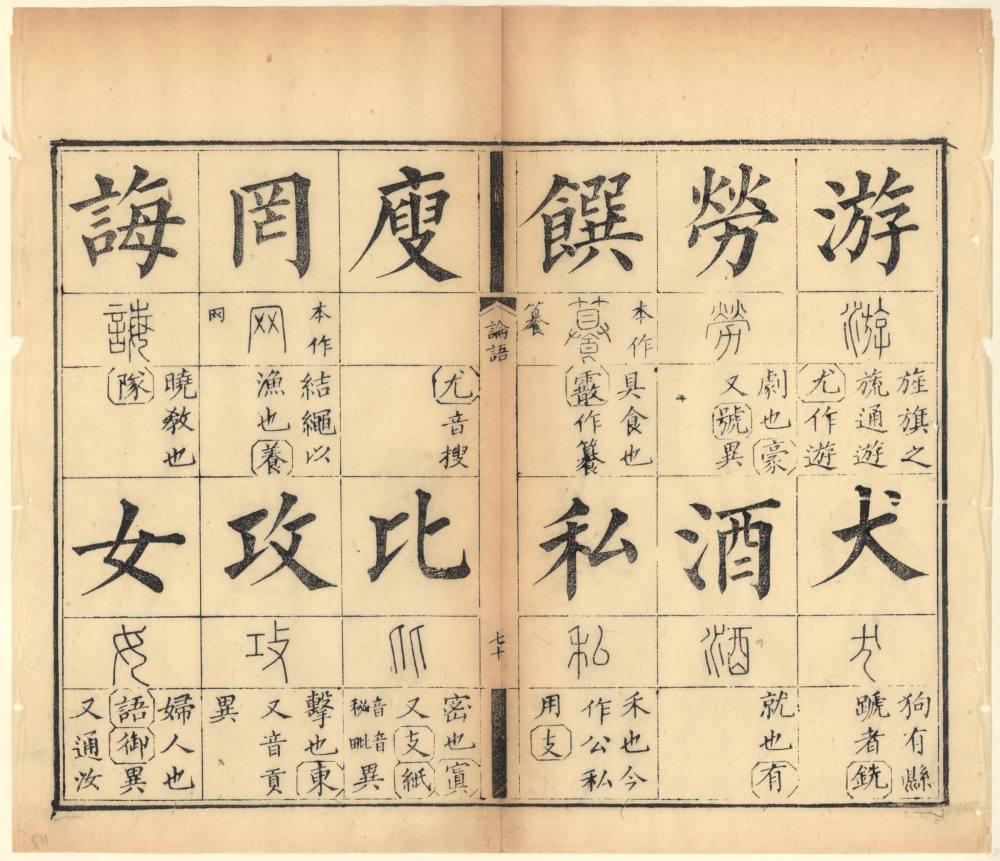 游
游
旌旗之
旒通遊
尤作遊
犬
犬
狗有縣
蹏者銑
勞
勞
劇也豪
又號異
酒
酒
就也有
饌
本作
籑
具食也
霰作籑
私
私
禾也今
作公私
用支
論語
七十
廋
尤音搜
比
比
密也寘
又支紙
音秘
音毗
異
罔
本作
网
网
結繩以
漁也養
攻
攻
擊也東
又音貢
異
誨
誨
曉教也
隊
女
女
婦人也
語御異
又通汝